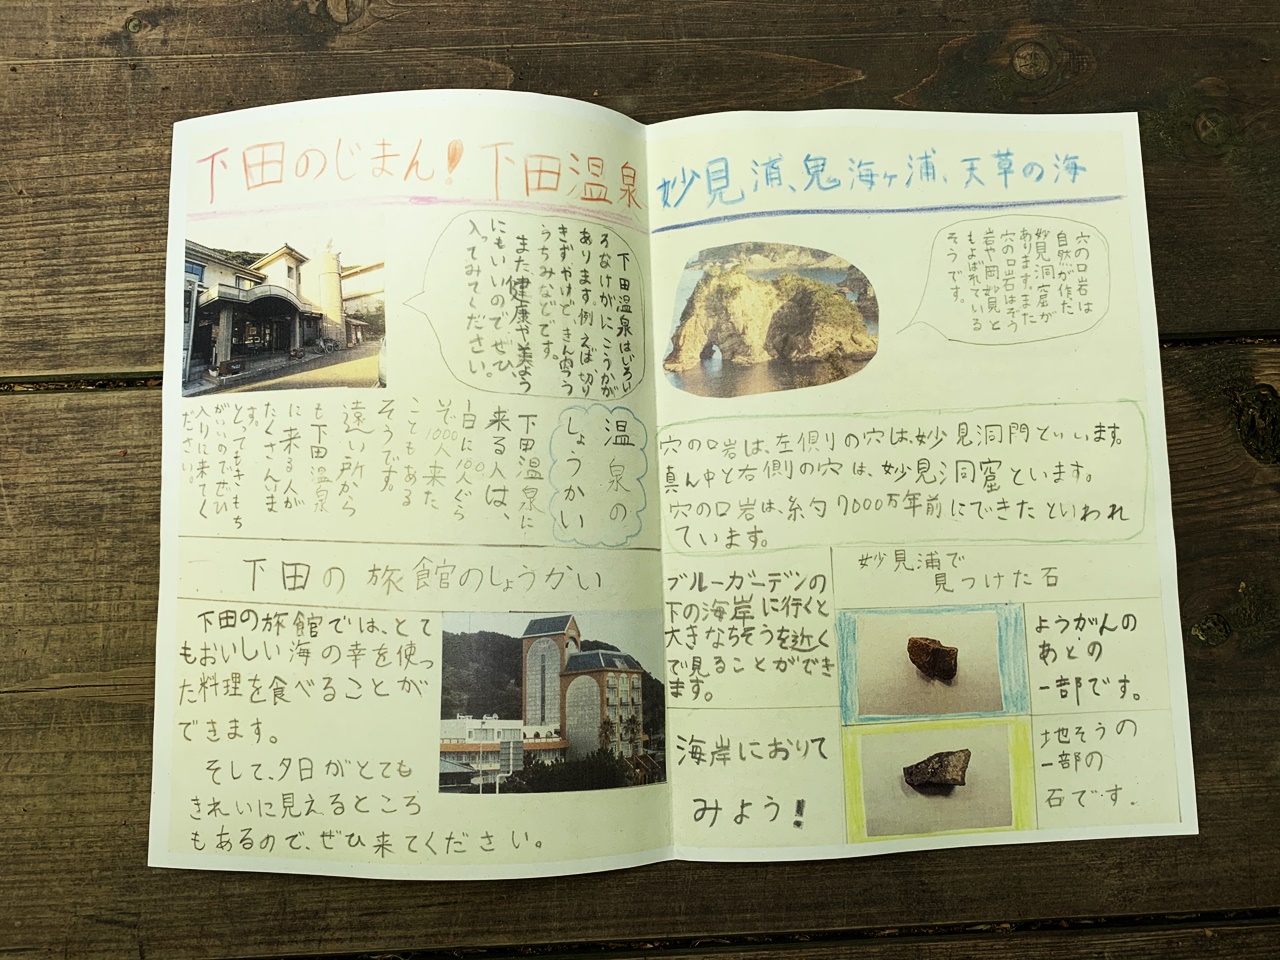 下田のじまん！下田温泉
下田温泉はいろい
ろなけがにこうかが
あります例えば、切り
きずややけど、きん肉つう
うちみなどです。
また健康や美よう
にもいいのでぜひ、
入ってみてください。
温泉の
しょうかい
下田温泉に
来る人は、
1日に100人ぐら
いで1000人来た
こともある
そうです。
遠い所から
も下田温泉
に来る人が
たくさんいま
す。
とってもきもち
がいいのでぜひ
入りに来てく
ださい。
下田の旅館のしょうかい
下田の旅館では、とて
もおいしい海の幸を使っ
た料理を食べることが
できます。
そして、夕日がとても
きれいに見えるところ
もあるので、ぜひ来てください。
妙見浦、鬼海ヶ浦、天草の海
穴の口岩は
自然が作た
妙見洞窟が
あります。また
穴の口岩はぞう
岩や岡妙見と
もよばれている
そうです。
穴の口岩は、左側りの穴は、妙見洞門といいます。
真ん中と右側の穴は、妙見洞窟といます。
穴の口岩は、約7000万年前にできたといわれ
ています。
ブルーガーデンの
下の海岸に行くと
大きなちそうを近く
で見ることができ
ます。
海岸におりて
みよう！
妙見浦で
見つけた石
ようがんの
あとの
一部です。
地そうの
一部の
石です.